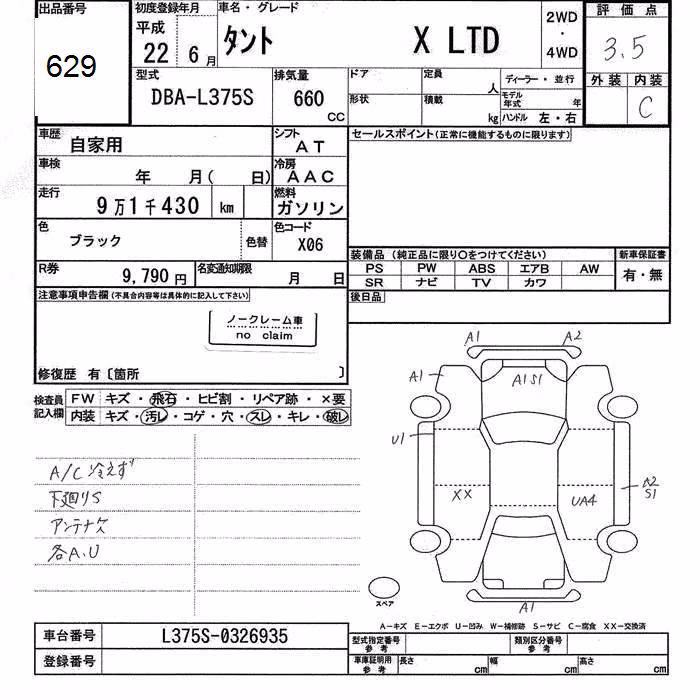 出品番号
629
初度登録年月
平成
22 6月
車名・グレード
タント X LTD
2WD
・
4WD
評価点
3.5
外装 内装
C
型式
DBA-L375S
排気量
660
CC
ドア
形状
定員
人
積載
kg
ディーラー・並行
モデル年式 年
ハンドル 左・右
車歴
自家用
シフト
AT
車検
年 月( 日)
冷房
AAC
走行
9万1千430 km
燃料
ガソリン
色
ブラック
色替
色コード
X06
R券
9,790円
名変通知期限
月 日
セールスポイント(正常に機能するものに限ります)
装備品 (純正品に限り○をつけてください)
PS PW ABS エアB AW
SR ナビ TV カワ
新車保証書
有・無
後日品
注意事項申告欄(不具合内容等は具体的に記入して下さい)
ノークレーム車
no claim
修復歴 有〔箇所 〕
検査員記入欄
FW キズ・飛石・ヒビ割・リペア跡・×要
内装 キズ・汚レ・コゲ・穴・スレ・キレ・破レ
A/C 冷えず
下廻りS
アンテナ欠
各A.U
A1 A2
A1
A1S1
U1
XX
UA4
A2
S1
A1
スペア
A-キズ E-エクボ U-凹み W-補修跡 S-サビ C-腐食 XX-交換済
車台番号 L375S-0326935
登録番号
型式指定番号
参考
類別区分番号
参考
車庫証明用
参考
長さ cm 幅 cm 高さ cm